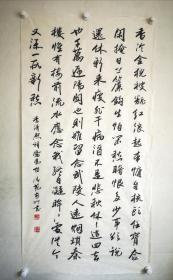 香冷金猊被翻红浪起来慵自梳头任宝奁
闲掩日上帘钩生怕闲愁暗恨多少事欲说
还休新来瘦非干病酒不是悲秋休这回去
也千万遍阳关也则难留念武陵人远烟锁秦
楼惟有楼前流水应念我终日凝眸处从今
又添一段新愁
李清照词